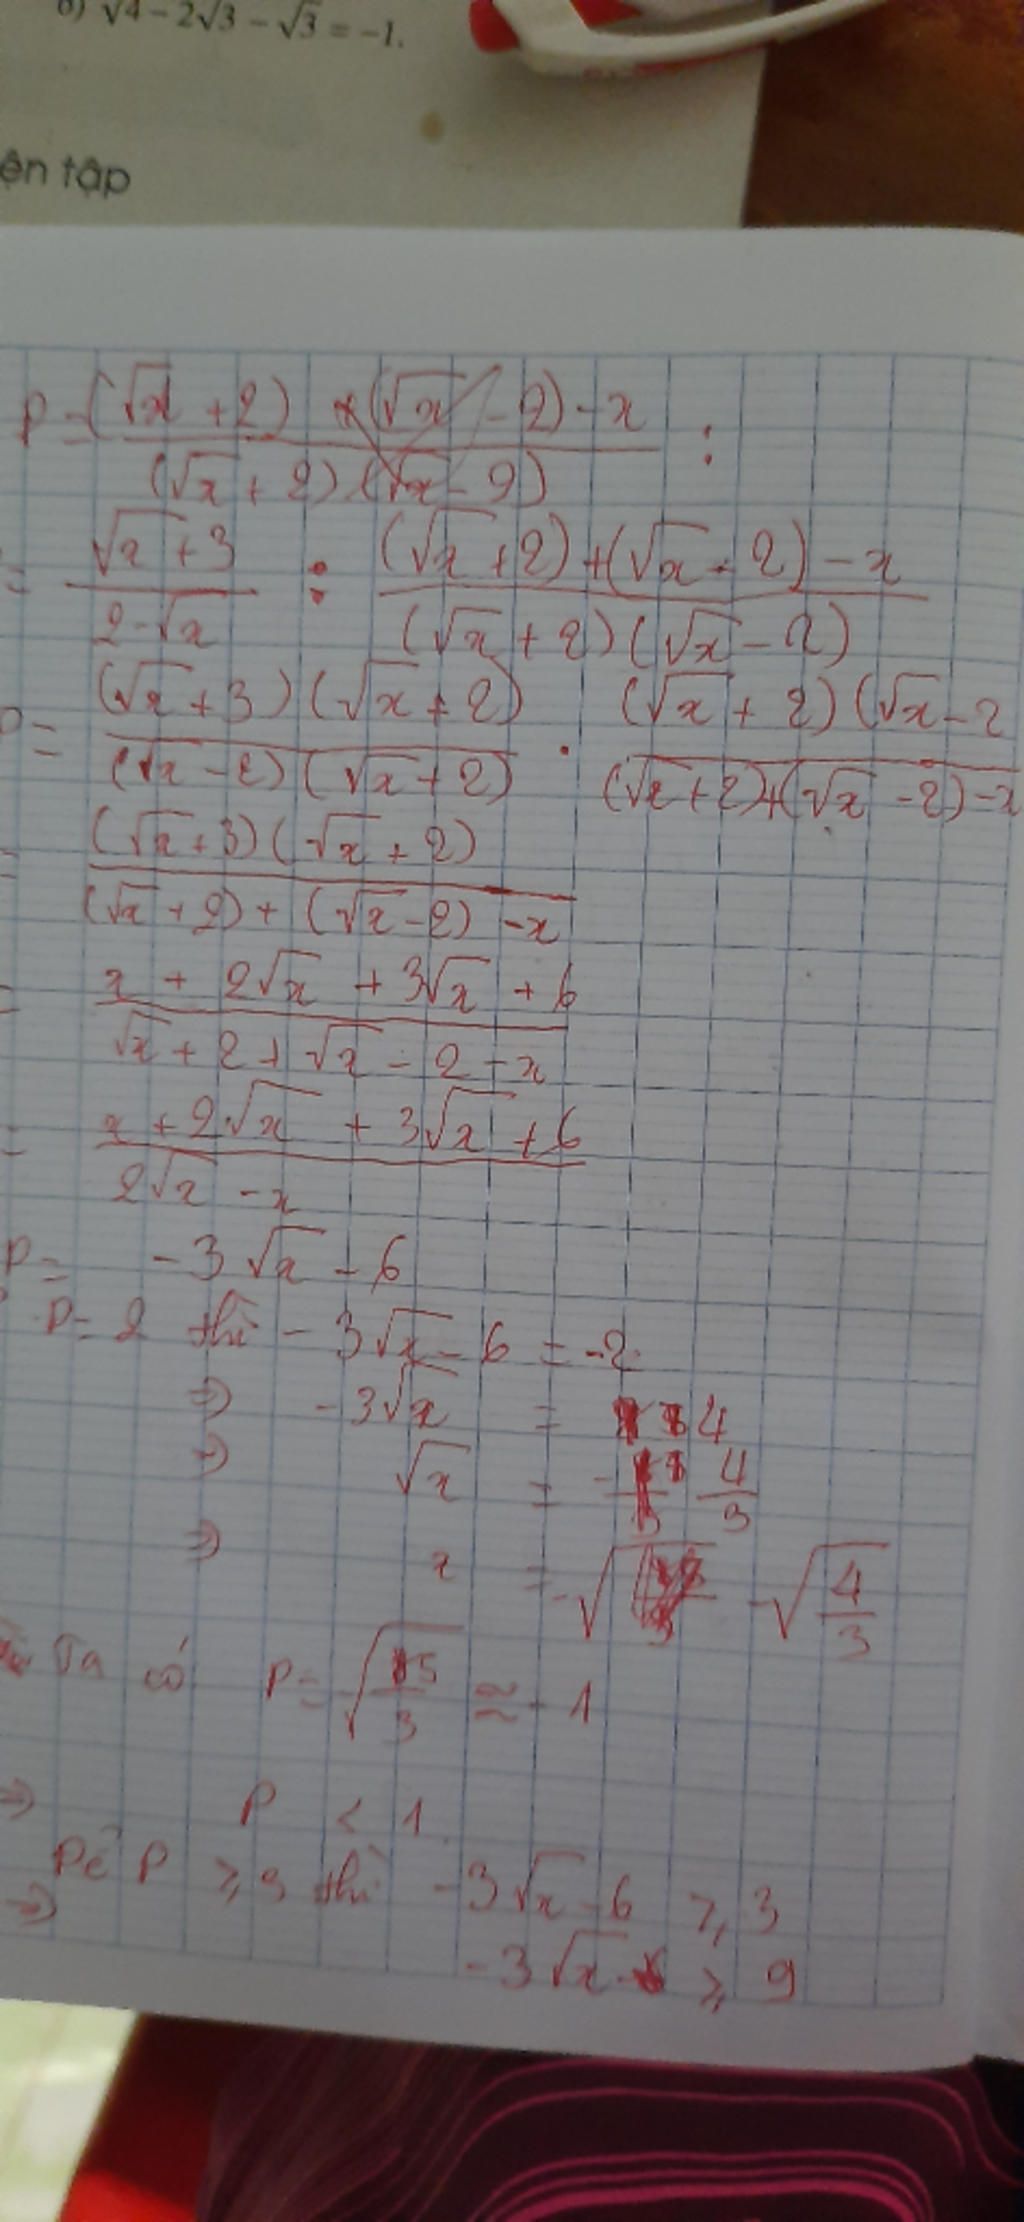 b) √4 − 2√3 − √3 = −1.
ện tập
P = ((√x + 2) + (√x − 2) − x) / ((√x + 2)(√x − 2)) :
= (√x + 3)/(2 − √x) : ((√x + 2) + (√x − 2) − x) / ((√x + 2)(√x − 2))
P = ((√x + 3)(√x + 2)) / ((√x − 2)(√x + 2)) · ((√x + 2)(√x − 2) / ((√x + 2) + (√x − 2) − x
= ((√x + 3)(√x + 2)) / ((√x + 2) + (√x − 2) − x)
= (x + 2√x + 3√x + 6) / (√x + 2 + √x − 2 − x)
= (x + 2√x + 3√x + 6) / (2√x − x)
P = −3√x − 6
P = 2 thì −3√x − 6 = −2
⇒ −3√x = 4
⇒ √x = − 4/3
⇒ x = −√(4/3)
Ta có P = √(15/3) ≈ − 1
⇒ P < 1
Để P ≥ 3 thì −3√x − 6 ≥ 3
⇒ −3√x ≥ 9